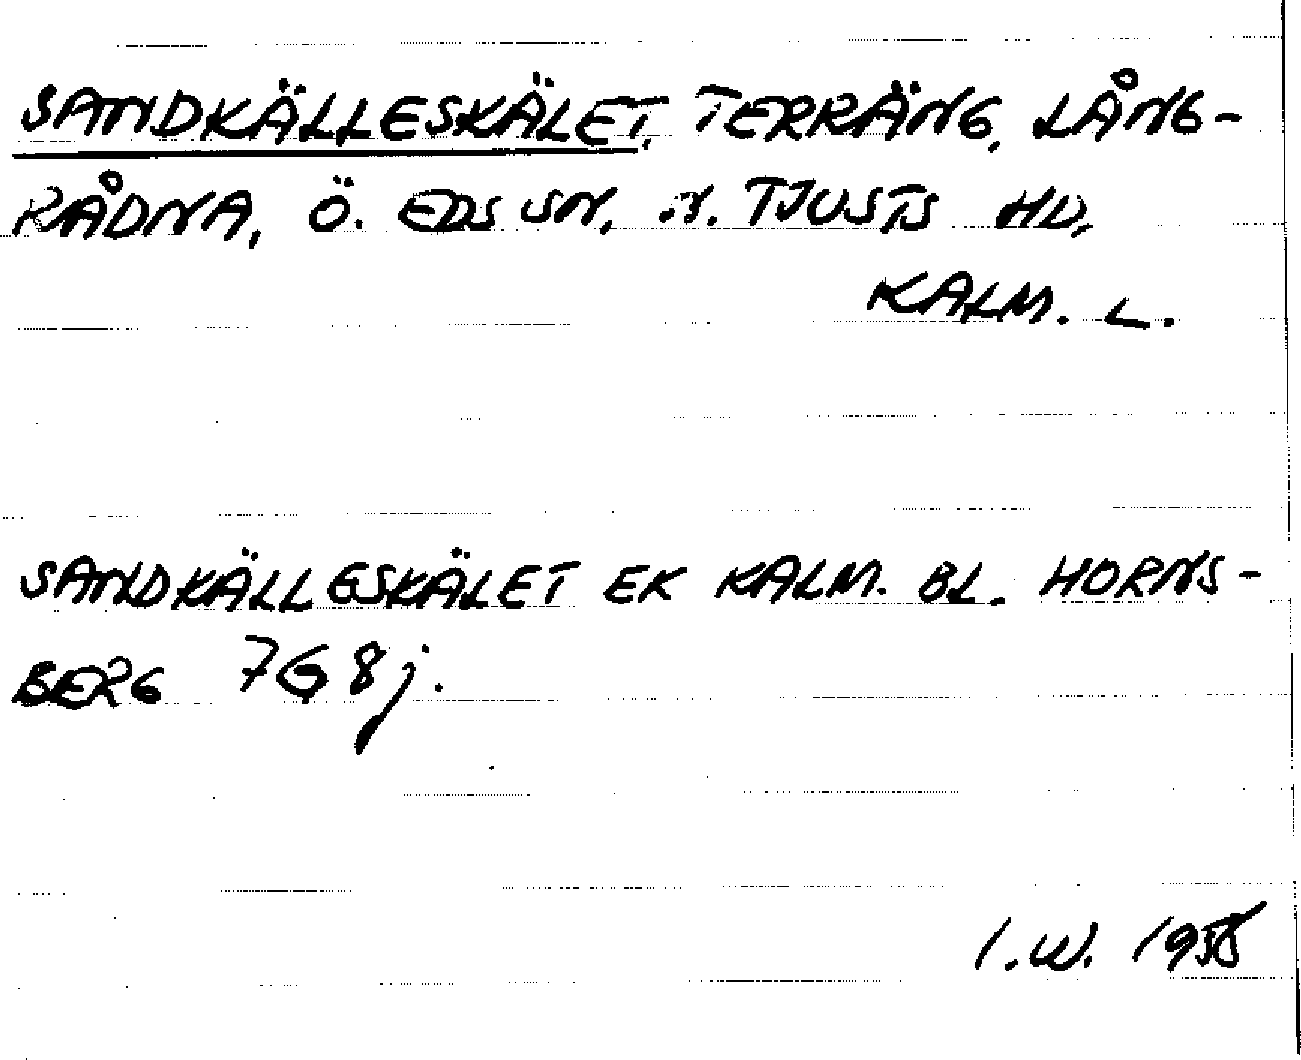 SANDKÄLLESKÄLET, TERRÄNG, LÅNG-
RÅDNA, Ö. EDS SN, N. TJUSTS HD,
KALM. L.
SANDKÄLLESKÄLET EK KALM. BL. HORNS-
BERG 7G8j.
I.W. 1955